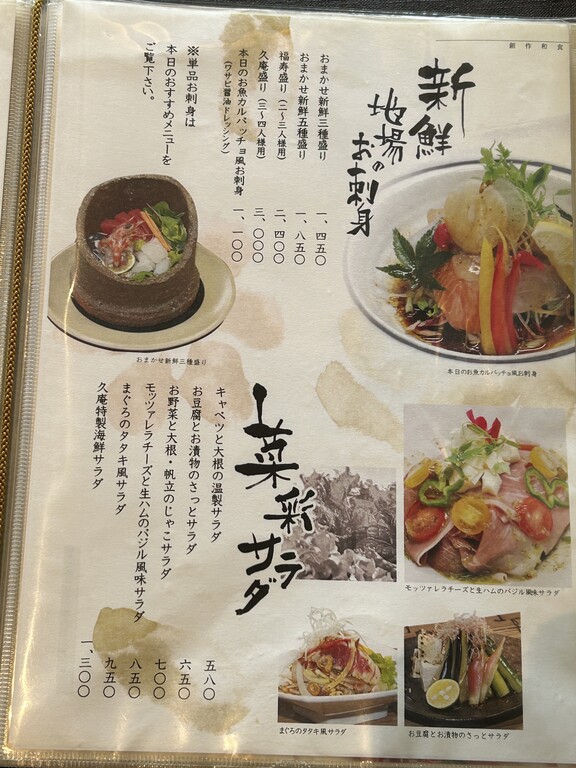 創作和食
新鮮
地場の
お刺身
おまかせ新鮮三種盛り 一、四五〇
おまかせ新鮮五種盛り 一、八五〇
福寿盛り（二～三人様用） 二、四〇〇
久庵盛り（三～四人様用） 三、〇〇〇
本日のお魚カルパッチョ風お刺身 一、一〇〇
（ワサビ醤油ドレッシング）
※単品お刺身は
本日のおすすめメニューを
ご覧下さい。
おまかせ新鮮三種盛り
本日のお魚カルパッチョ風お刺身
菜彩サラダ
キャベツと大根の温製サラダ 五八〇
お豆腐とお漬物のさっとサラダ 六五〇
お野菜と大根・帆立のじゃこサラダ 七〇〇
モッツァレラチーズと生ハムのバジル風味サラダ 八五〇
まぐろのタタキ風サラダ 九五〇
久庵特製海鮮サラダ 一、三〇〇
モッツァレラチーズと生ハムのバジル風味サラダ
まぐろのタタキ風サラダ
お豆腐とお漬物のさっとサラダ